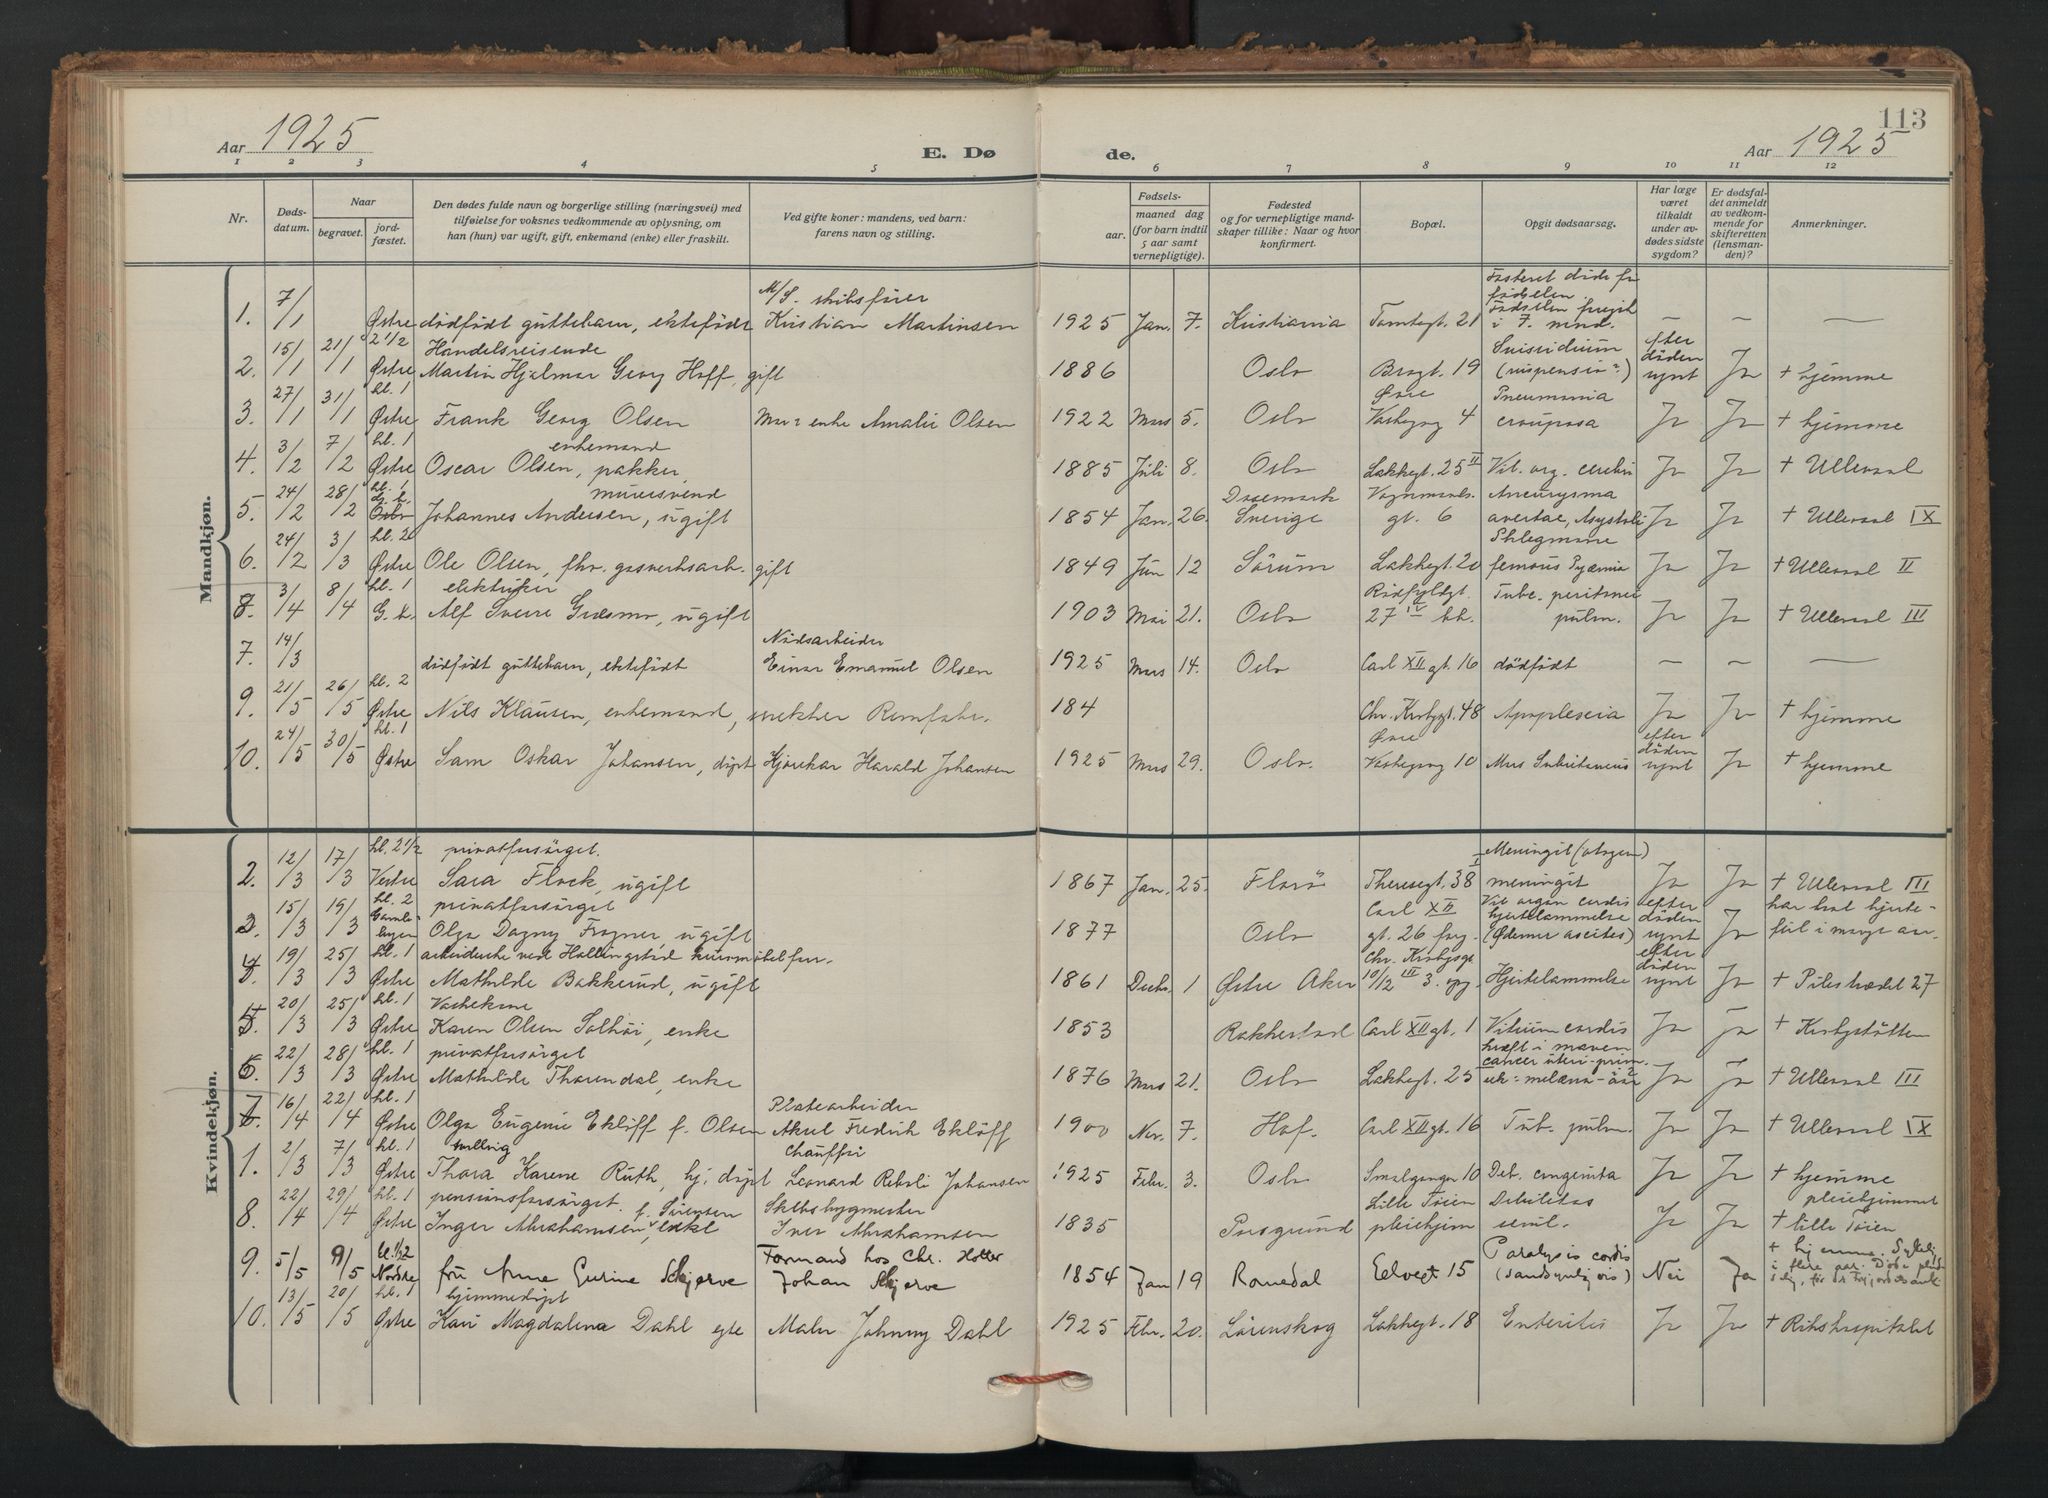 113
Aar 1925
E. Dø
de.
Aar 1925
1 2 3 4 5 6 7 8 9 10 11 12
Nr.
Døds-
datum.
Naar
begravet.
jord-
fæstet.
Den dødes fulde navn og borgerlige stilling (næringsvei) med
tilføielse for voksnes vedkommende av oplysning, om
han (hun) var ugift, gift, enkemand (enke) eller fraskilt.
Ved gifte koner: mandens, ved barn:
farens navn og stilling.
Fødsels-
aar.
maaned dag
(for barn indtil
5 aar samt
vernepligtige).
Fødested
og for vernepligtige mand-
skaper tillike: Naar og hvor
konfirmert.
Bopæl.
Opgit dødsaarsag.
Har læge
været
tilkaldt
under av-
dødes sidste
sygdom?
Er dødsfal-
det anmeldt
av vedkom-
mende for
skifteretten
(lensman-
den)?
Anmerkninger.
Mandkjøn.
M/S. skibsfører
Fosteret døde før
fødselen
Fødselen foregik
1. 7/1 Østre dødfødt guttebarn, ektefødt Kristian Martinsen 1925 Jan. 7. Kristiania Tomtegt. 21 i 7. mnd. — — —
kl. 2 1/2 Handelsreisende Suicidium efter
døden
2. 15/1 21/1 Østre Martin Hjalmar Georg Hoff, gift 1886 Oslo Brogt. 19 (suspensio?) synt Ja + hjemme
kl. 1 Øvre Pneumonia
3. 27/1 31/1 Østre Frank Georg Olsen Mor: enke Amalie Olsen 1922 Mars 5. Oslo Vaskegang 4 crouposa Ja Ja + hjemme
kl. 1 enkemand
4. 3/2 7/2 Østre Oscar Olsen, pakker, 1885 Juli 8. Oslo Lakkegt. 25 II Vit. org. cordis Ja Ja + Ullevaal
kl. 1 murersvend Vognmands- Aneurysma
5. 24/2 28/2 Johannes Andersen, ugift 1854 Jan. 26. Sverige gt. 6 aortae, Asystoli Ja Ja + Ullevaal IX
kl. 2 Phlegmone
6. 24/2 3/3 Østre Ole Olsen, fhv. gasverksarb. gift 1849 Jun 12 Sørum Lakkegt. 20 femoris Pyæmia Ja Ja + Ullevaal II
kl. 1 elektriker Tube. peritonei
8. 3/4 8/4 G. k. Alf Sverre, ugift 1903 Mai 21. Oslo 27 IV pulm. Ja Ja + Ullevaal III
Nødsarbeider
7. 14/3 dødfødt guttebarn, ektefødt Einar Emanuel Olsen 1925 Mars 14. Oslo Carl XII gt. 16 dødfødt — — —
kl. 2
9. 21/5 26/5 Østre Nils Klausen, enkemand, 184 Chr. Krohgsgt. 48 Apoplexia Ja Ja + hjemme
kl. 1 Øvre efter
døden
10. 24/5 30/5 Østre Sam Oskar Johansen, døpt Kjørekar Harald Johansen 1925 Mars 29. Oslo. Vaskegang 10 Mors Subitaneus synt Ja + hjemme
Kvindekjøn.
kl. 2 1/2 privatforsørget. Meningit (otogen)
2. 12/3 17/3 Vestre Sara Flock, ugift 1867 Jan. 25. Florø Theresegt. 38 I meningit Ja Ja + Ullevaal III
kl. 2 privatforsørget Carl XII Vit. organ cordis efter har hat hjerte-
Gamle- hjertelammelse døden
3. 15/3 19/3 byen Olga Dagny Frogner, ugift 1877 Oslo gt. 26 (Ødemer ascites) synt Ja feil i mange aar.
kl. 1 arbeiderske ved efter
døden
4. 19/3 25/3 Østre Mathilde Bakkerud, ugift 1861 Decbr. 1 Østre Aker 10/2 III 3. opg. Hjertelammelse synt Ja + Pilestrædet 27
kl. 1 Vaskekone
5. 20/3 25/3 Østre Karen Olsen Solhøi, enke 1853 Rakkestad Carl XII gt. 1 Vitium cordis Ja Ja + Krohgstøtten
kl. 1 privatforsørget kræft i maven
cancer uteri-prim.
6. 22/3 28/3 Østre Mathilde Thorendal, enke 1876 Mars 21. Oslo Lakkegt. 25 Ja Ja + Ullevaal III
kl. 1 Platearbeider
7. 16/4 22/4 Østre Olga Eugenie Eklöff f. Olsen Aksel Fredrik Eklöff 1900 Nov. 7. Hof. Carl XII gt. 16 Tub. pulm. Ja Ja + Ullevaal IX
kl. 1 tvilling Chauffør
1. 2/3 7/3 Østre Thora Karene Ruth, hj. døpt Leonard Johansen 1925 Febr. 3. Oslo Smalgangen 10 Deb. congenita Ja Ja + hjemme
kl. 1 pensionsforsørget. f. Sørensen Skibsbygmester Lille Tøien Debilitas pleiehjemmet
8. 22/4 29/4 Østre Inger Abrahamsen, enke Iver Abrahamsen 1835 Porsgrund pleiehjem senil. Ja Ja + lille Tøien
kl. 1 1/2 Formand hos Chr. Holter Paralysis cordis + hjemme. Sykelig
i flere aar.
9. 5/5 9/5 Nordre fru Anne Gurine Skjerve Johan Skjerve 1854 Jan 19 Romedal Eelvegt 15 (sandsynligvis) Nei Ja
kl. 1 hjemmedøpt
10. 13/5 20/5 Østre Kari Magdalena Dahl egte Maler Johnny Dahl 1925 Febr. 20. Lørenskog Lakkegt. 18 Enteritis Ja Ja + Rikshospitalet